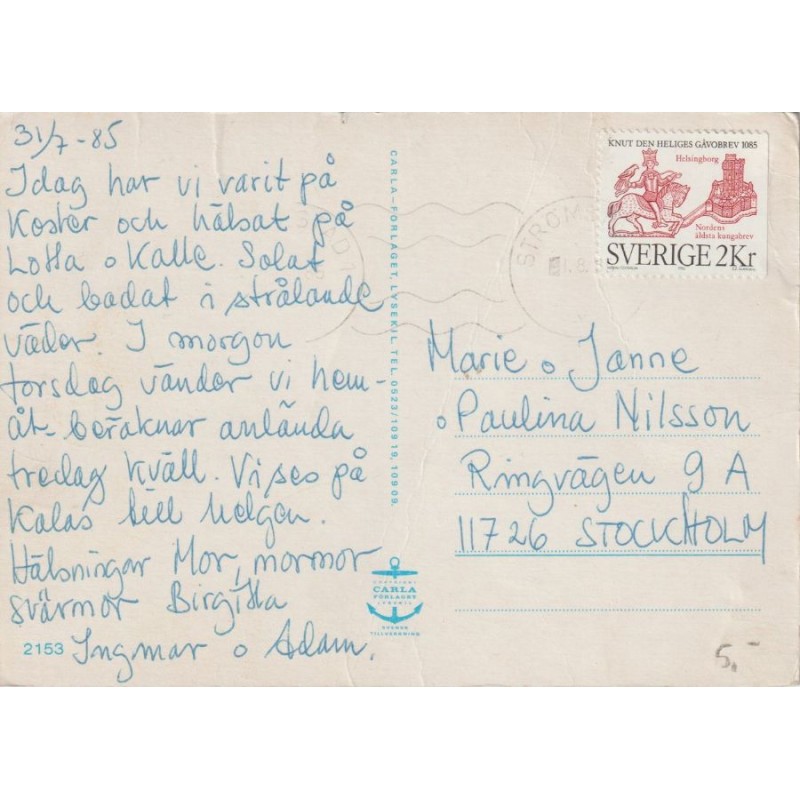 31/7-85
Idag har vi varit på
Koster och hälsat på
Lotta o Kalle. Solat
och badat i strålande
väder. I morgon
torsdag vänder vi hem-
åt - beräknar anlända
fredag kväll. Vi ses på
Kalas till helgen.
Hälsningar Mor, mormor
svärmor Birgitta
Ingmar o Adam.
2153
CARLA-FÖRLAGET, LYSEKIL, TEL. 0523/10919, 10909.
CARLA
FÖRLAGET
LYSEKIL
SVENSK
TILLVERKNING
STRÖM
KNUT DEN HELIGES GÅVOBREV 1085
Helsingborg
Nordens
äldsta kungabrev
SVERIGE 2Kr
Marie o Janne
o Paulina Nilsson
Ringvägen 9 A
11726 STOCKHOLM
5,-